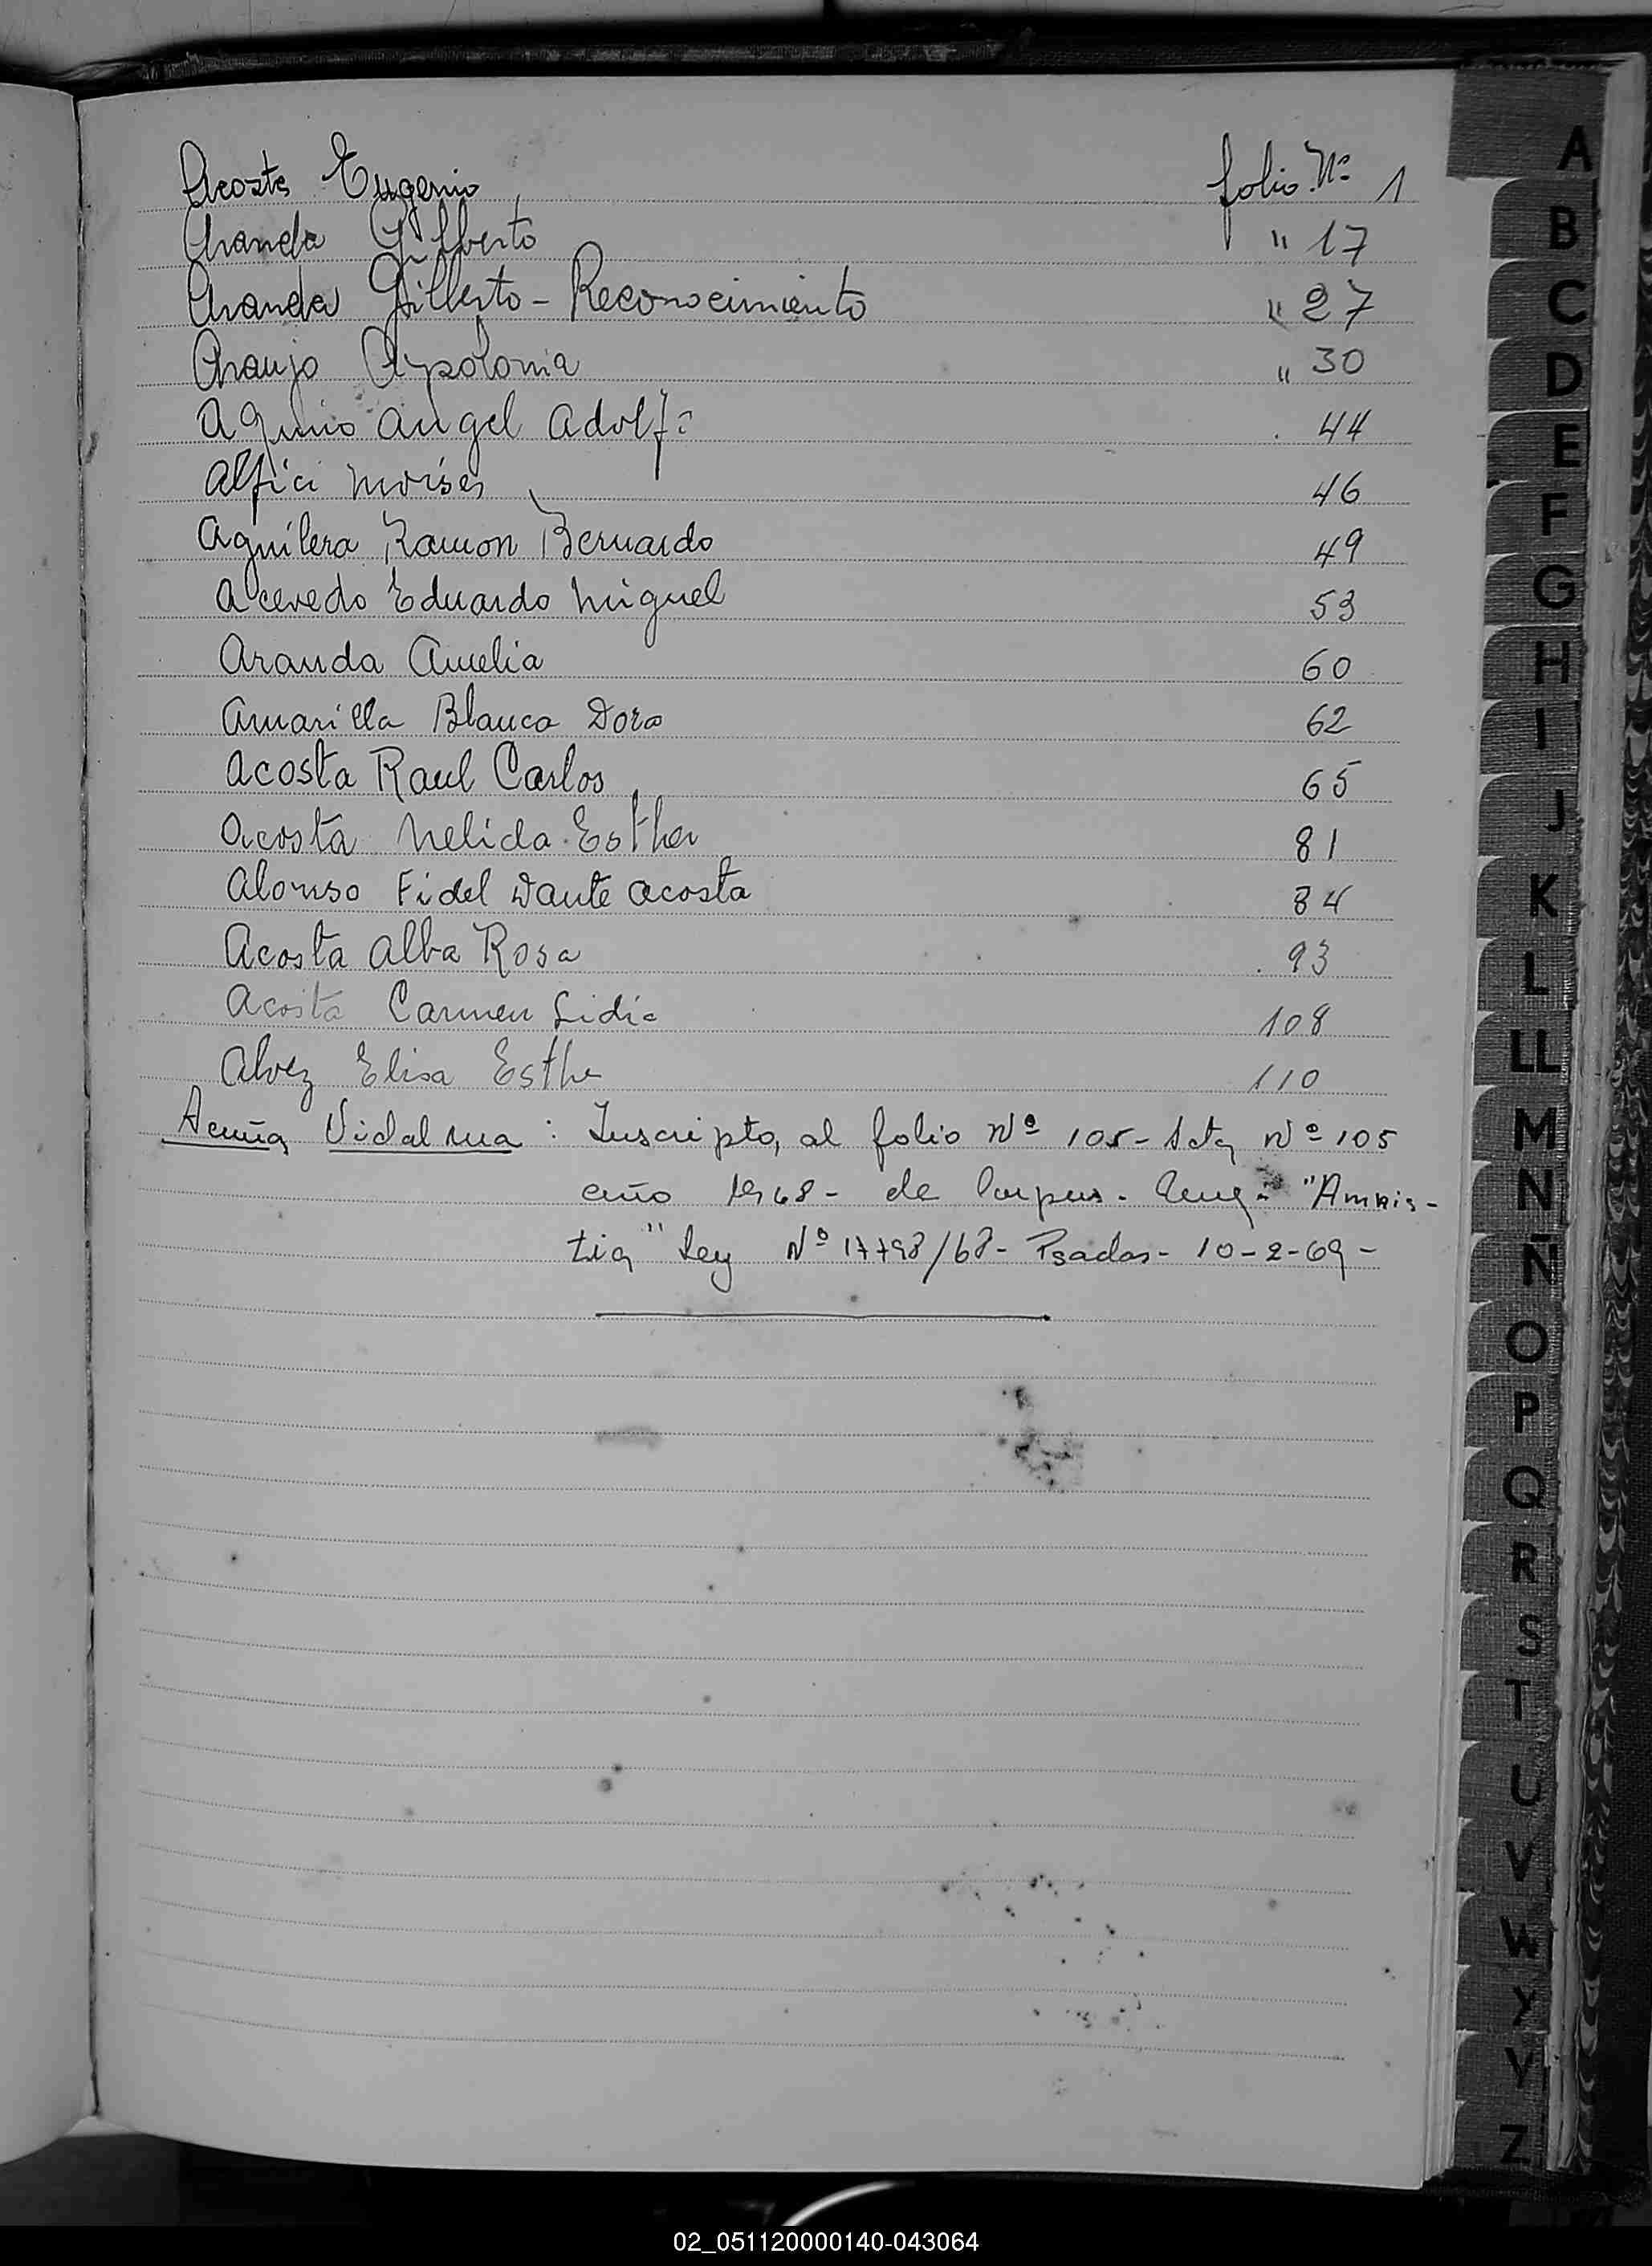 Acosta Eugenio folio Nº 1
Aranda Gilberto " 17
Aranda Gilberto - Reconocimiento " 27
Araujo Apolonia " 30
Aquino Angel Adolfo 44
Alfici Moises 46
Aguilera Ramon Bernardo 49
Acevedo Eduardo Miguel 53
Aranda Amelia 60
Amarilla Blanca Dora 62
Acosta Raul Carlos 65
Acosta Nelida Esther 81
Alonso Fidel Dante Acosta 84
Acosta Alba Rosa 93
Acosta Carmen Lidia 108
Alvez Elisa Esther 110
Acuña Vidalina : Inscripto, al folio Nº 105 - Acta Nº 105
año 1968 - de Corpus - "Amnis-
tia" Ley Nº 17798/68 - Psadas - 10-2-69 -
A
B
C
D
E
F
G
H
I
J
K
L
LL
M
N
Ñ
O
P
Q
R
S
T
U
V
W
Y
Z
02_051120000140-043064